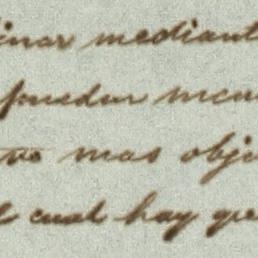 inar mediant
puedan men
mas obje
l cual hay que